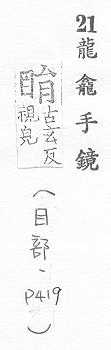 21 龍龕手鏡
古玄反
視皃
(目部、p419)